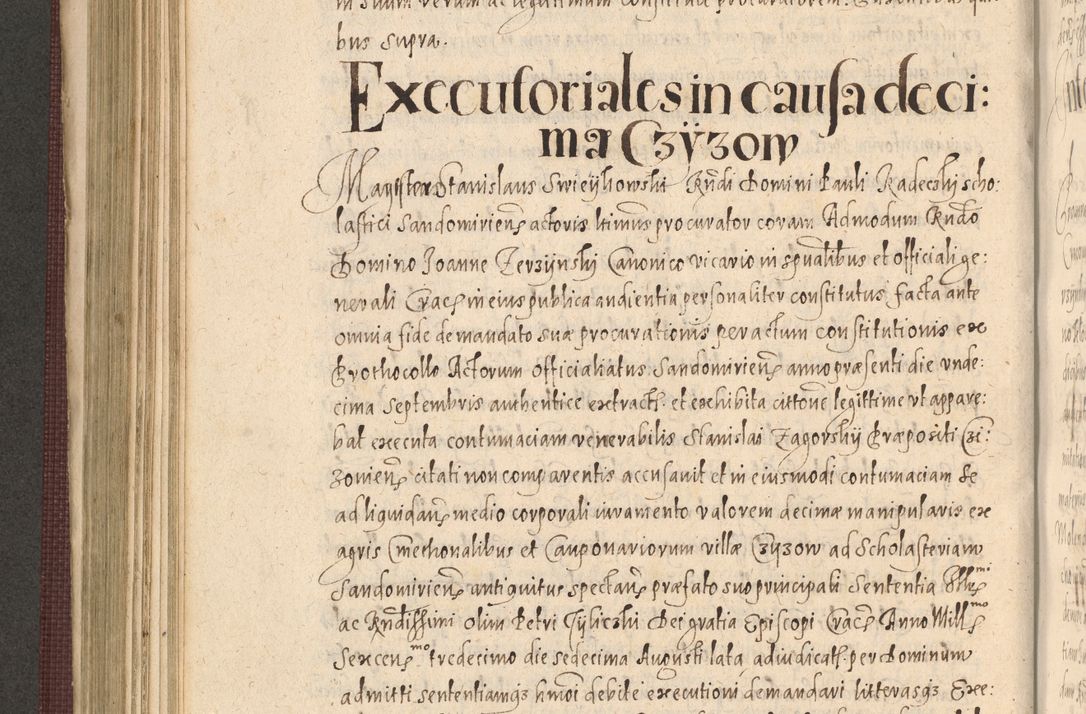 bus supra.
Executoriales in causa deci:
ma Czÿzow
Magister Stanislaus Swieÿkowski Rndi Domini Pauli Radeczky scho:
lastici Sandomirien actoris ltimus procurator coram Admodum Rndo
Domino Joanne Zerzÿnsky Canonico vicario in spualibus et officiali ge:
nerali Crac in eius publica audientia personaliter constitutus facta ante
omnia fide de mandato suæ procurationis per actum constitutionis ex
Prothocollo Actorum Officialiatus Sandomirien anno præsenti die unde:
cima Septembris authentice extract. et exhibita cittone legittime vt appare:
bat executa contumaciam venerabilis Stanislai Zagorskÿ Præpositi Czi:
zovien citati non comparentis accusavit et in eiusmodi contumaciam se
ad liquidan medio corporali iuramento valorem decimæ manipularis ex
agris Cmethonalibus et Cauponariorum villæ Czÿzow ad Scholasteriam
Sandomirien antiquitus spectan præfato suo principali Sententia Illmi
ac Rndissimi olim Petri Tÿliczki Dei gratia Episcopi Crac Anno Mill mo
Sexcen mo tredecimo die sedecima Augusti lata adiudicat. per Dominum
admitti sententiamqȝ hmoi debite executioni demandari litterasqȝ Exe: